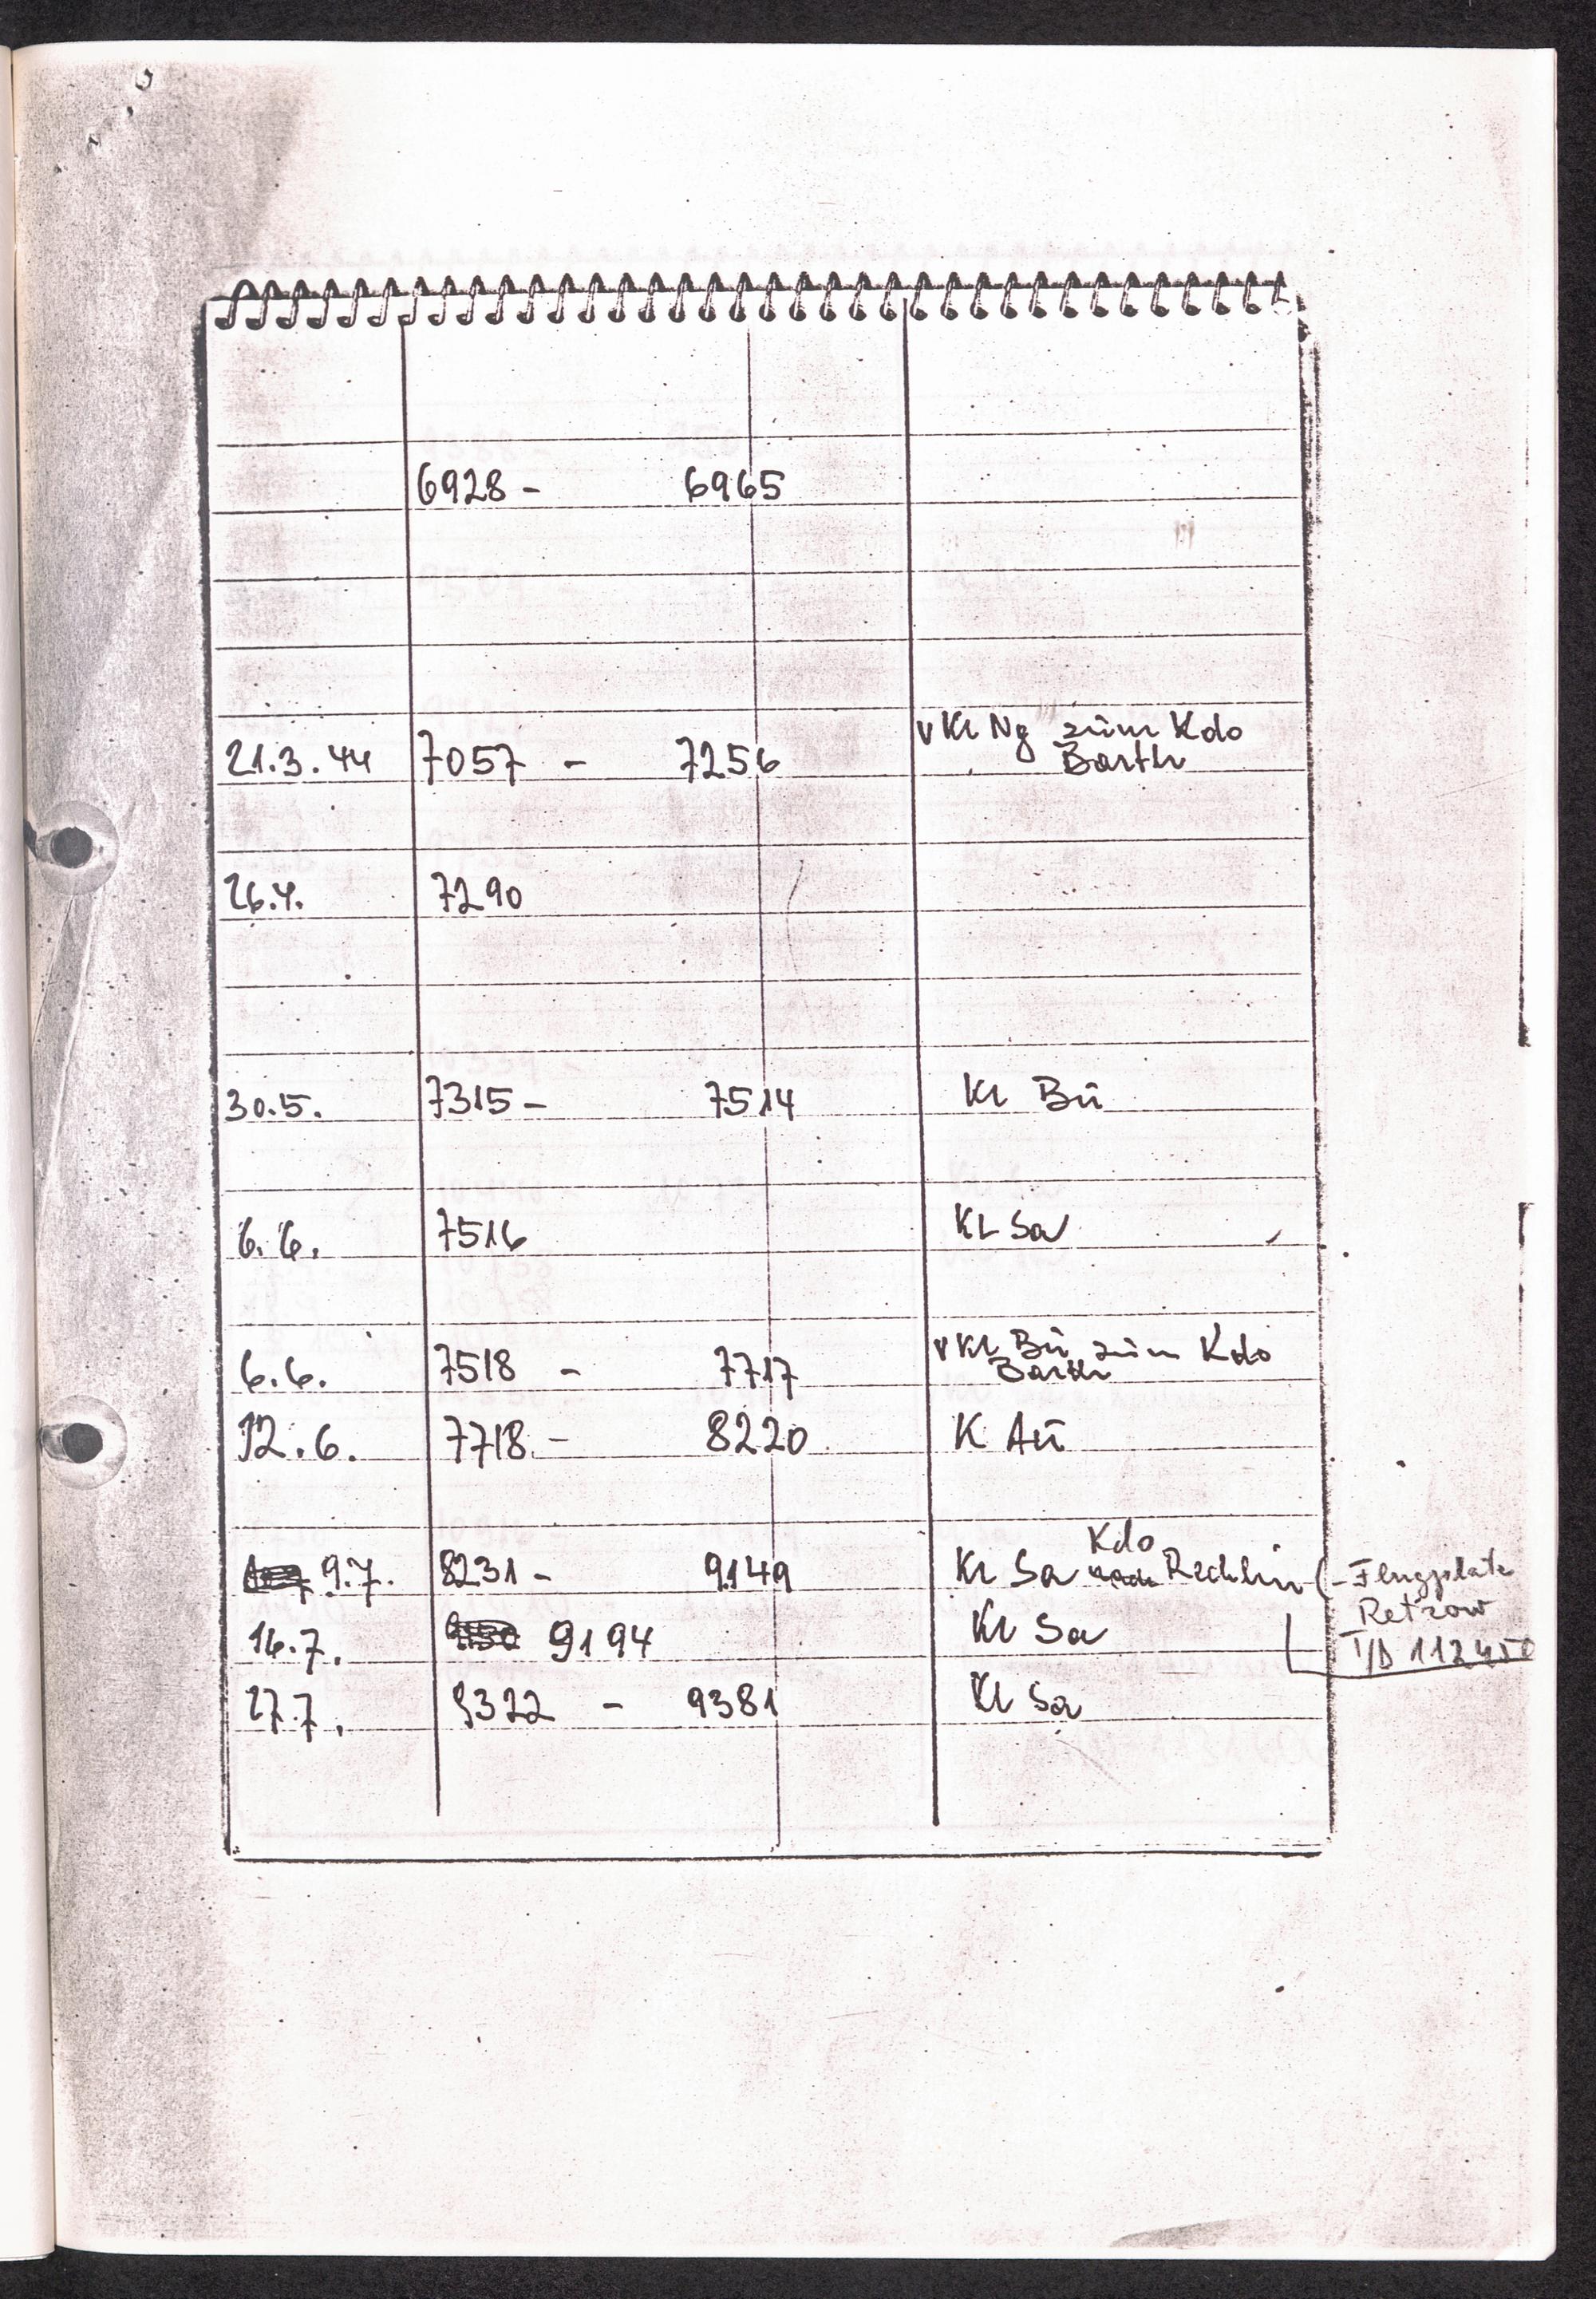 6928 - 6965
v Kl Ng zum Kdo
21.3.44 7057 - 7256 Barth
26.4. 7290
30.5. 7315 - 7514 Kl Bū
6.6. 7516 KL Sa
v Kl Bū zum Kdo
6.6. 7518 - 7717 Barth
12.6. 7718 - 8220 K Aū
Kdo
9.7. 8231 - 9149 Kl Sa nach Rechlin (- Flugplatz
Retzow
16.7. 9194 Kl Sa
T/D 112450
27.7. 9322 - 9381 Kl Sa